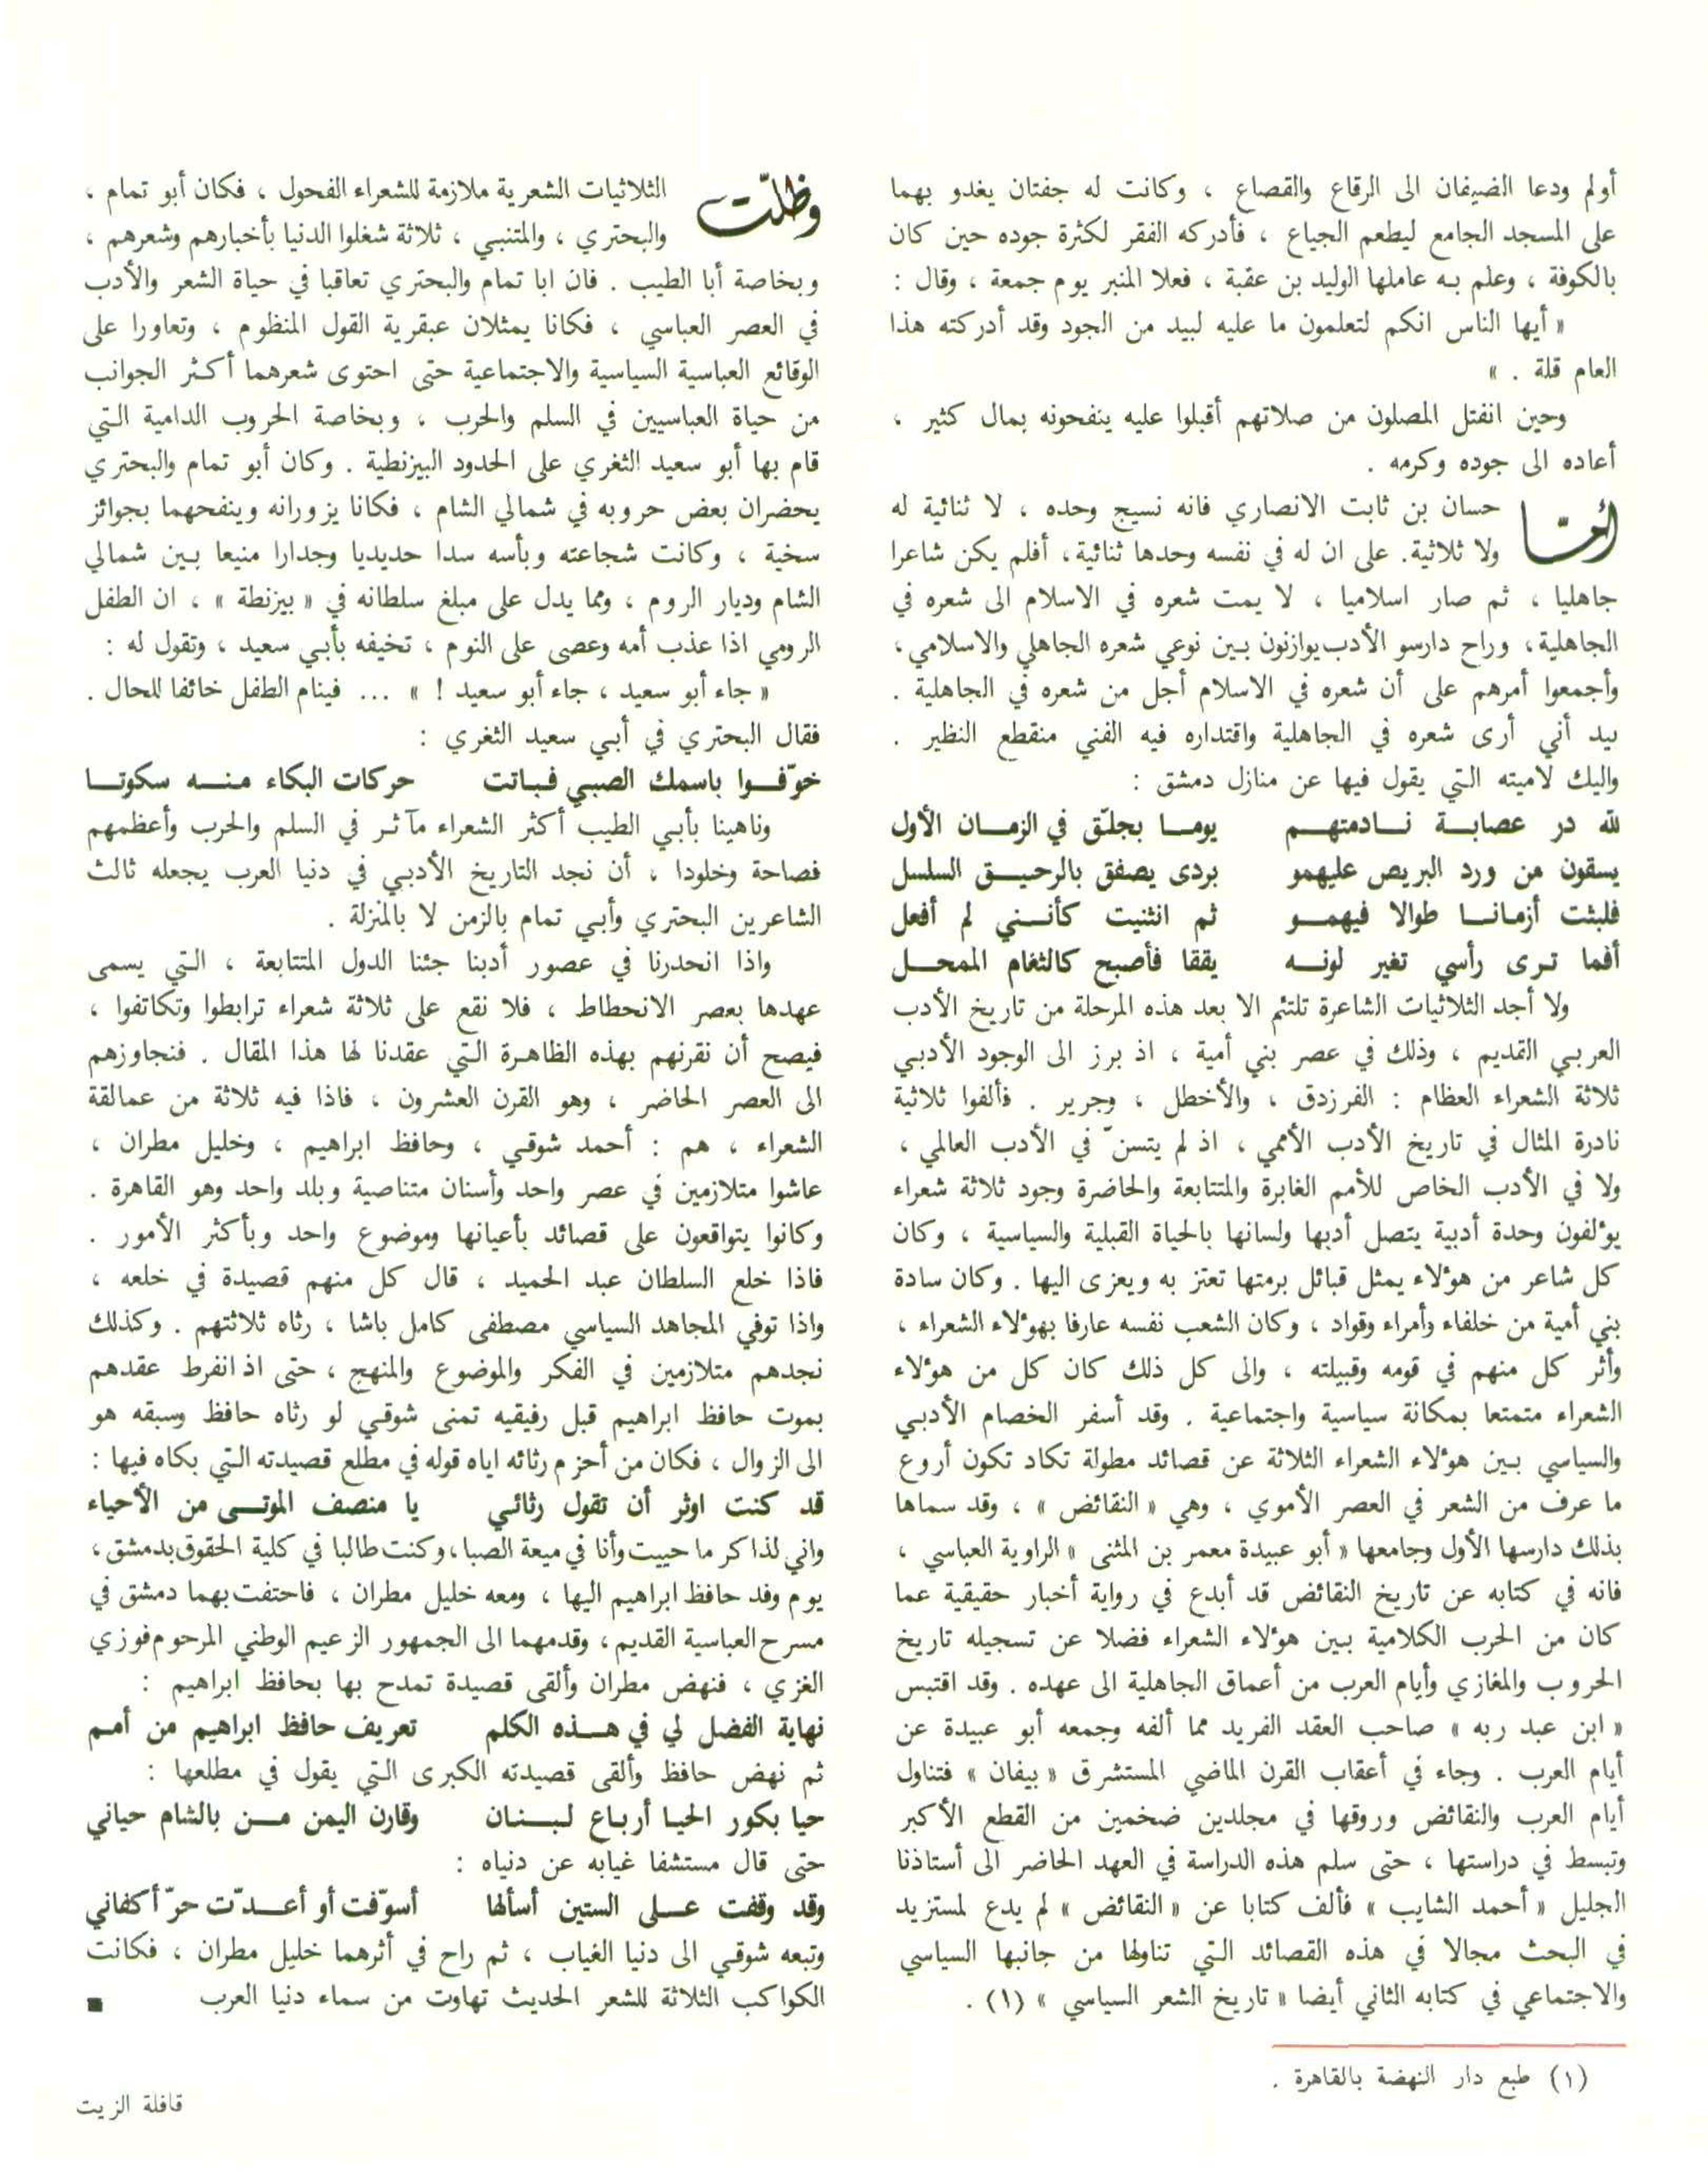 أولم ودعا الضيفان الى الرقاع والقصاع ، وكانت له جفنتان يغدو بهما
على المسجد الجامع ليطعم الجياع ، فأدركه الفقر لكثرة جوده حين كان
بالكوفة ، وعلم به عاملها الوليد بن عقبة ، فعلا المنبر يوم جمعة ، وقال :
« أيها الناس انكم لتعلمون ما عليه لبيد من الجود وقد أدركته هذا
العام قلة . »
وحين انفتل المصلون من صلاتهم أقبلوا عليه ينفحونه بمال كثير ،
أعاده الى جوده وكرمه .
أمّا حسان بن ثابت الانصاري فانه نسيج وحده ، لا ثنائية له
ولا ثلاثية. على ان له في نفسه وحدها ثنائية، أفلم يكن شاعرا
جاهليا ، ثم صار اسلاميا ، لا يمت شعره في الاسلام الى شعره في
الجاهلية، وراح دارسو الأدب يوازنون بين نوعي شعره الجاهلي والاسلامي،
وأجمعوا أمرهم على أن شعره في الاسلام أجل من شعره في الجاهلية .
بيد أني أرى شعره في الجاهلية واقتداره فيه الفني منقطع النظير .
واليك لاميته التي يقول فيها عن منازل دمشق :
لله در عصابة نادمتهم يوما بجلّق في الزمان الأول
يسقون من ورد البريص عليهمو بردى يصفق بالرحيق السلسل
فلبثت أزمانا طوالا فيهمو ثم انثنيت كأنني لم أفعل
أفما ترى رأسي تغير لونه يققا فأصبح كالثغام الممحل
ولا أجد الثلاثيات الشاعرة تلتئم الا بعد هذه المرحلة من تاريخ الأدب
العربي القديم ، وذلك في عصر بني أمية ، اذ برز الى الوجود الأدبي
ثلاثة الشعراء العظام : الفرزدق ، والأخطل ، وجرير . فألفوا ثلاثية
نادرة المثال في تاريخ الأدب الأممي ، اذ لم يتسنّ في الأدب العالمي ،
ولا في الأدب الخاص للأمم الغابرة والمتتابعة والحاضرة وجود ثلاثة شعراء
يؤلفون وحدة أدبية يتصل أدبها ولسانها بالحياة القبلية والسياسية ، وكان
كل شاعر من هؤلاء يمثل قبائل برمتها تعتز به ويعزى اليها . وكان سادة
بني أمية من خلفاء وأمراء وقواد ، وكان الشعب نفسه عارفا بهؤلاء الشعراء ،
وأثر كل منهم في قومه وقبيلته ، والى كل ذلك كان كل من هؤلاء
الشعراء متمتعا بمكانة سياسية واجتماعية . وقد أسفر الخصام الأدبي
والسياسي بين هؤلاء الشعراء الثلاثة عن قصائد مطولة تكاد تكون أروع
ما عرف من الشعر في العصر الأموي ، وهي « النقائض » ، وقد سماها
بذلك دارسها الأول وجامعها « أبو عبيدة معمر بن المثنى » الراوية العباسي ،
فانه في كتابه عن تاريخ النقائض قد أبدع في رواية أخبار حقيقية عما
كان من الحرب الكلامية بين هؤلاء الشعراء فضلا عن تسجيله تاريخ
الحروب والمغازي وأيام العرب من أعماق الجاهلية الى عهده . وقد اقتبس
« ابن عبد ربه » صاحب العقد الفريد مما ألفه وجمعه أبو عبيدة عن
أيام العرب . وجاء في أعقاب القرن الماضي المستشرق « بيفان » فتناول
أيام العرب والنقائض وروقها في مجلدين ضخمين من القطع الأكبر
وتبسط في دراستها ، حتى سلم هذه الدراسة في العهد الحاضر الى أستاذنا
الجليل « أحمد الشايب » فألف كتابا عن « النقائض » لم يدع لمستزيد
في البحث مجالا في هذه القصائد التي تناولها من جانبها السياسي
والاجتماعي في كتابه الثاني أيضا « تاريخ الشعر السياسي » (١) .
(١) طبع دار النهضة بالقاهرة .
وظلّت الثلاثيات الشعرية ملازمة للشعراء الفحول ، فكان أبو تمام ،
والبحتري ، والمتنبي ، ثلاثة شغلوا الدنيا بأخبارهم وشعرهم ،
وبخاصة أبا الطيب . فان ابا تمام والبحتري تعاقبا في حياة الشعر والأدب
في العصر العباسي ، فكانا يمثلان عبقرية القول المنظوم ، وتعاورا على
الوقائع العباسية السياسية والاجتماعية حتى احتوى شعرهما أكثر الجوانب
من حياة العباسيين في السلم والحرب ، وبخاصة الحروب الدامية التي
قام بها أبو سعيد الثغري على الحدود البيزنطية . وكان أبو تمام والبحتري
يحضران بعض حروبه في شمالي الشام ، فكانا يزورانه وينفحهما بجوائز
سخية ، وكانت شجاعته وبأسه سدا حديديا وجدارا منيعا بين شمالي
الشام وديار الروم ، ومما يدل على مبلغ سلطانه في « بيزنطة » ، ان الطفل
الرومي اذا عذب أمه وعصى على النوم ، تخيفه بأبي سعيد ، وتقول له :
« جاء أبو سعيد ، جاء أبو سعيد ! » ... فينام الطفل خائفا للحال .
فقال البحتري في أبي سعيد الثغري :
خوّفوا باسمك الصبي فباتت حركات البكاء منه سكوتا
وناهينا بأبي الطيب أكثر الشعراء مآثر في السلم والحرب وأعظمهم
فصاحة وخلودا ، أن نجد التاريخ الأدبي في دنيا العرب يجعله ثالث
الشاعرين البحتري وأبي تمام بالزمن لا بالمنزلة .
واذا انحدرنا في عصور أدبنا جئنا الدول المتتابعة ، التي يسمى
عهدها بعصر الانحطاط ، فلا نقع على ثلاثة شعراء ترابطوا وتكاتفوا ،
فيصح أن نقرنهم بهذه الظاهرة التي عقدنا لها هذا المقال . فنجاوزهم
الى العصر الحاضر ، وهو القرن العشرون ، فاذا فيه ثلاثة من عمالقة
الشعراء ، هم : أحمد شوقي ، وحافظ ابراهيم ، وخليل مطران ،
عاشوا متلازمين في عصر واحد وأسنان متناصية وبلد واحد وهو القاهرة .
وكانوا يتواقعون على قصائد بأعيانها وموضوع واحد وبأكثر الأمور .
فاذا خلع السلطان عبد الحميد ، قال كل منهم قصيدة في خلعه ،
واذا توفي المجاهد السياسي مصطفى كامل باشا ، رثاه ثلاثتهم . وكذلك
نجدهم متلازمين في الفكر والموضوع والمنهج ، حتى اذ انفرط عقدهم
بموت حافظ ابراهيم قبل رفيقيه تمنى شوقي لو رثاه حافظ وسبقه هو
الى الزوال ، فكان من أحزم رثائه اياه قوله في مطلع قصيدته التي بكاه فيها :
قد كنت اوثر أن تقول رثائي يا منصف الموتى من الأحياء
واني لذاكر ما حييت وأنا في ميعة الصبا، وكنت طالبا في كلية الحقوق بدمشق،
يوم وفد حافظ ابراهيم اليها ، ومعه خليل مطران ، فاحتفت بهما دمشق في
مسرح العباسية القديم، وقدمهما الى الجمهور الزعيم الوطني المرحوم فوزي
الغزي ، فنهض مطران وألقى قصيدة تمدح بها بحافظ ابراهيم :
نهاية الفضل لي في هذه الكلم تعريف حافظ ابراهيم من أمم
ثم نهض حافظ وألقى قصيدته الكبرى التي يقول في مطلعها :
حيا بكور الحيا أرباع لبنان وقارن اليمن من بالشام حياني
حتى قال مستشفا غيابه عن دنياه :
وقد وقفت على الستين أسألها أسوّفت أو أعدّت حرّ أكفاني
وتبعه شوقي الى دنيا الغياب ، ثم راح في أثرهما خليل مطران ، فكانت
الكواكب الثلاثة للشعر الحديث تهاوت من سماء دنيا العرب
قافلة الزيت